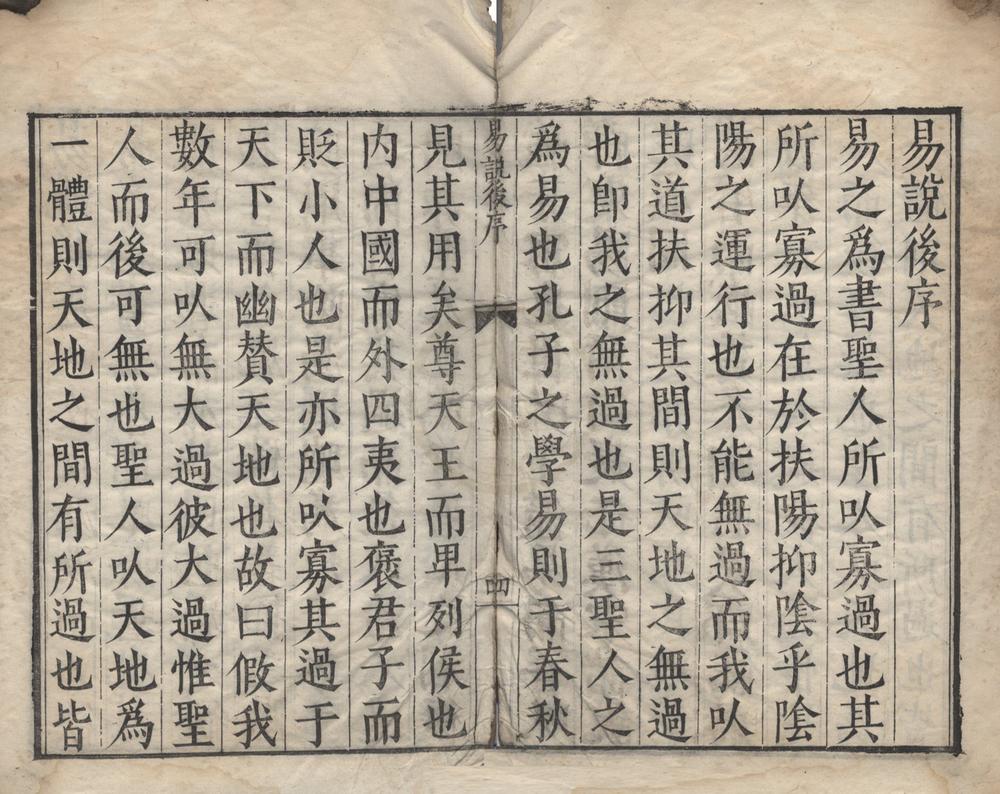 易說後序
易之爲書聖人所㕥寡過也其
所㕥寡過在於扶陽抑陰乎陰
陽之運行也不能無過而我㕥
其道扶抑其間則天地之無過
也卽我之無過也是三聖人之
爲易也孔子之學易則于春秋
易說後序
四
見其用矣尊天王而卑列侯也
内中國而外四夷也褒君子而
貶小人也是亦所㕥寡其過于
天下而幽賛天地也故曰假我
數年可㕥無大過彼大過惟聖
人而後可無也聖人㕥天地爲
一體則天地之間有所過也皆